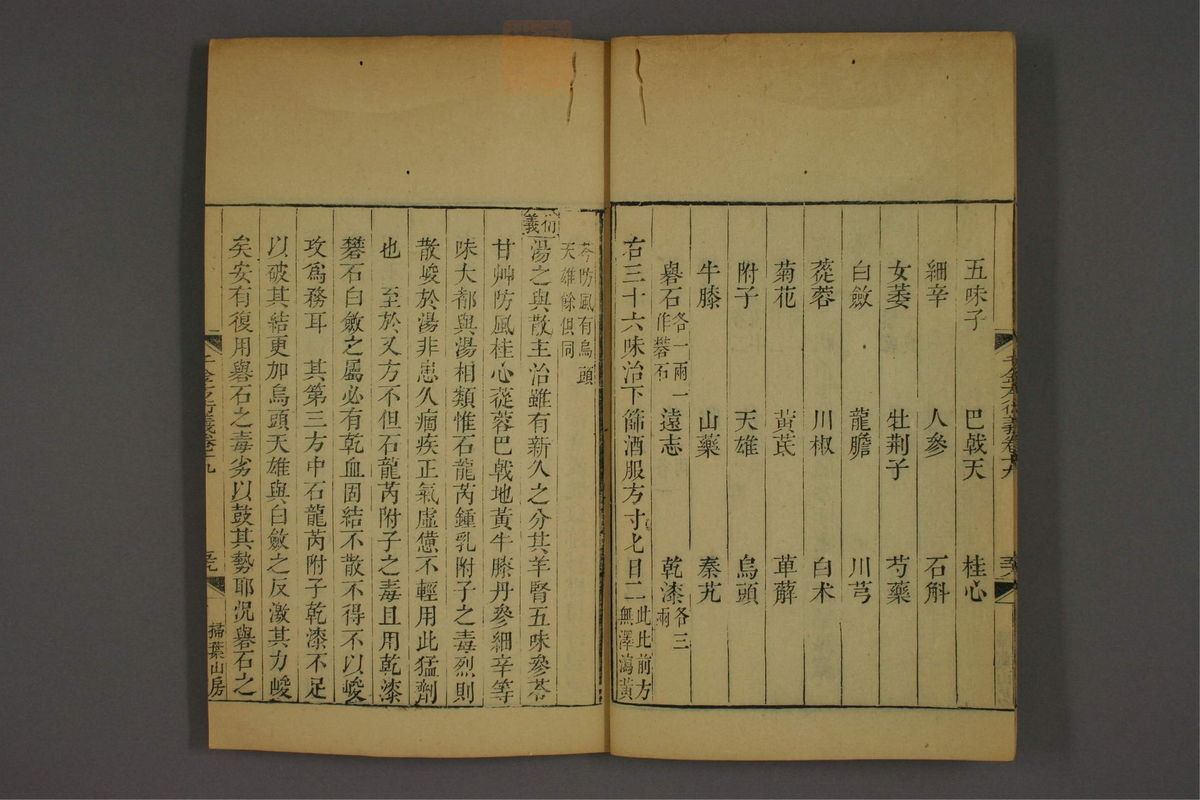 五味子 巴戟天 桂心
細辛 人參 石斛
女萎 牡荆子 芍藥
白斂 龍膽 川芎
蓯蓉 川椒 白术
菊花 黃芪 萆薢
附子 天雄 烏頭
牛膝 山藥 秦艽
礜石各一兩一作礬石 遠志 乾漆各三兩
右三十六味治下篩酒服方寸匕日二此比前方無澤瀉黃
芩防風有烏頭天雄餘俱同
衍義
湯之與散主治雖有新久之分其羊腎五味參苓
甘艸防風桂心蓯蓉巴戟地黃牛膝丹參細辛等
味大都與湯相類惟石龍芮鍾乳附子之毒烈則
散峻於湯非患久痼疾正氣虛憊不輕用此猛劑
也 至於又方不但石龍芮附子之毒且用乾漆
礬石白斂之屬必有乾血固結不散不得不以峻
攻爲務耳 其第三方中石龍芮附子乾漆不足
以破其結更加烏頭天雄與白斂之反激其力峻
矣安有復用礜石之毒劣以鼓其勢耶况礜石之
千金方衍義卷十九
掃葉山房